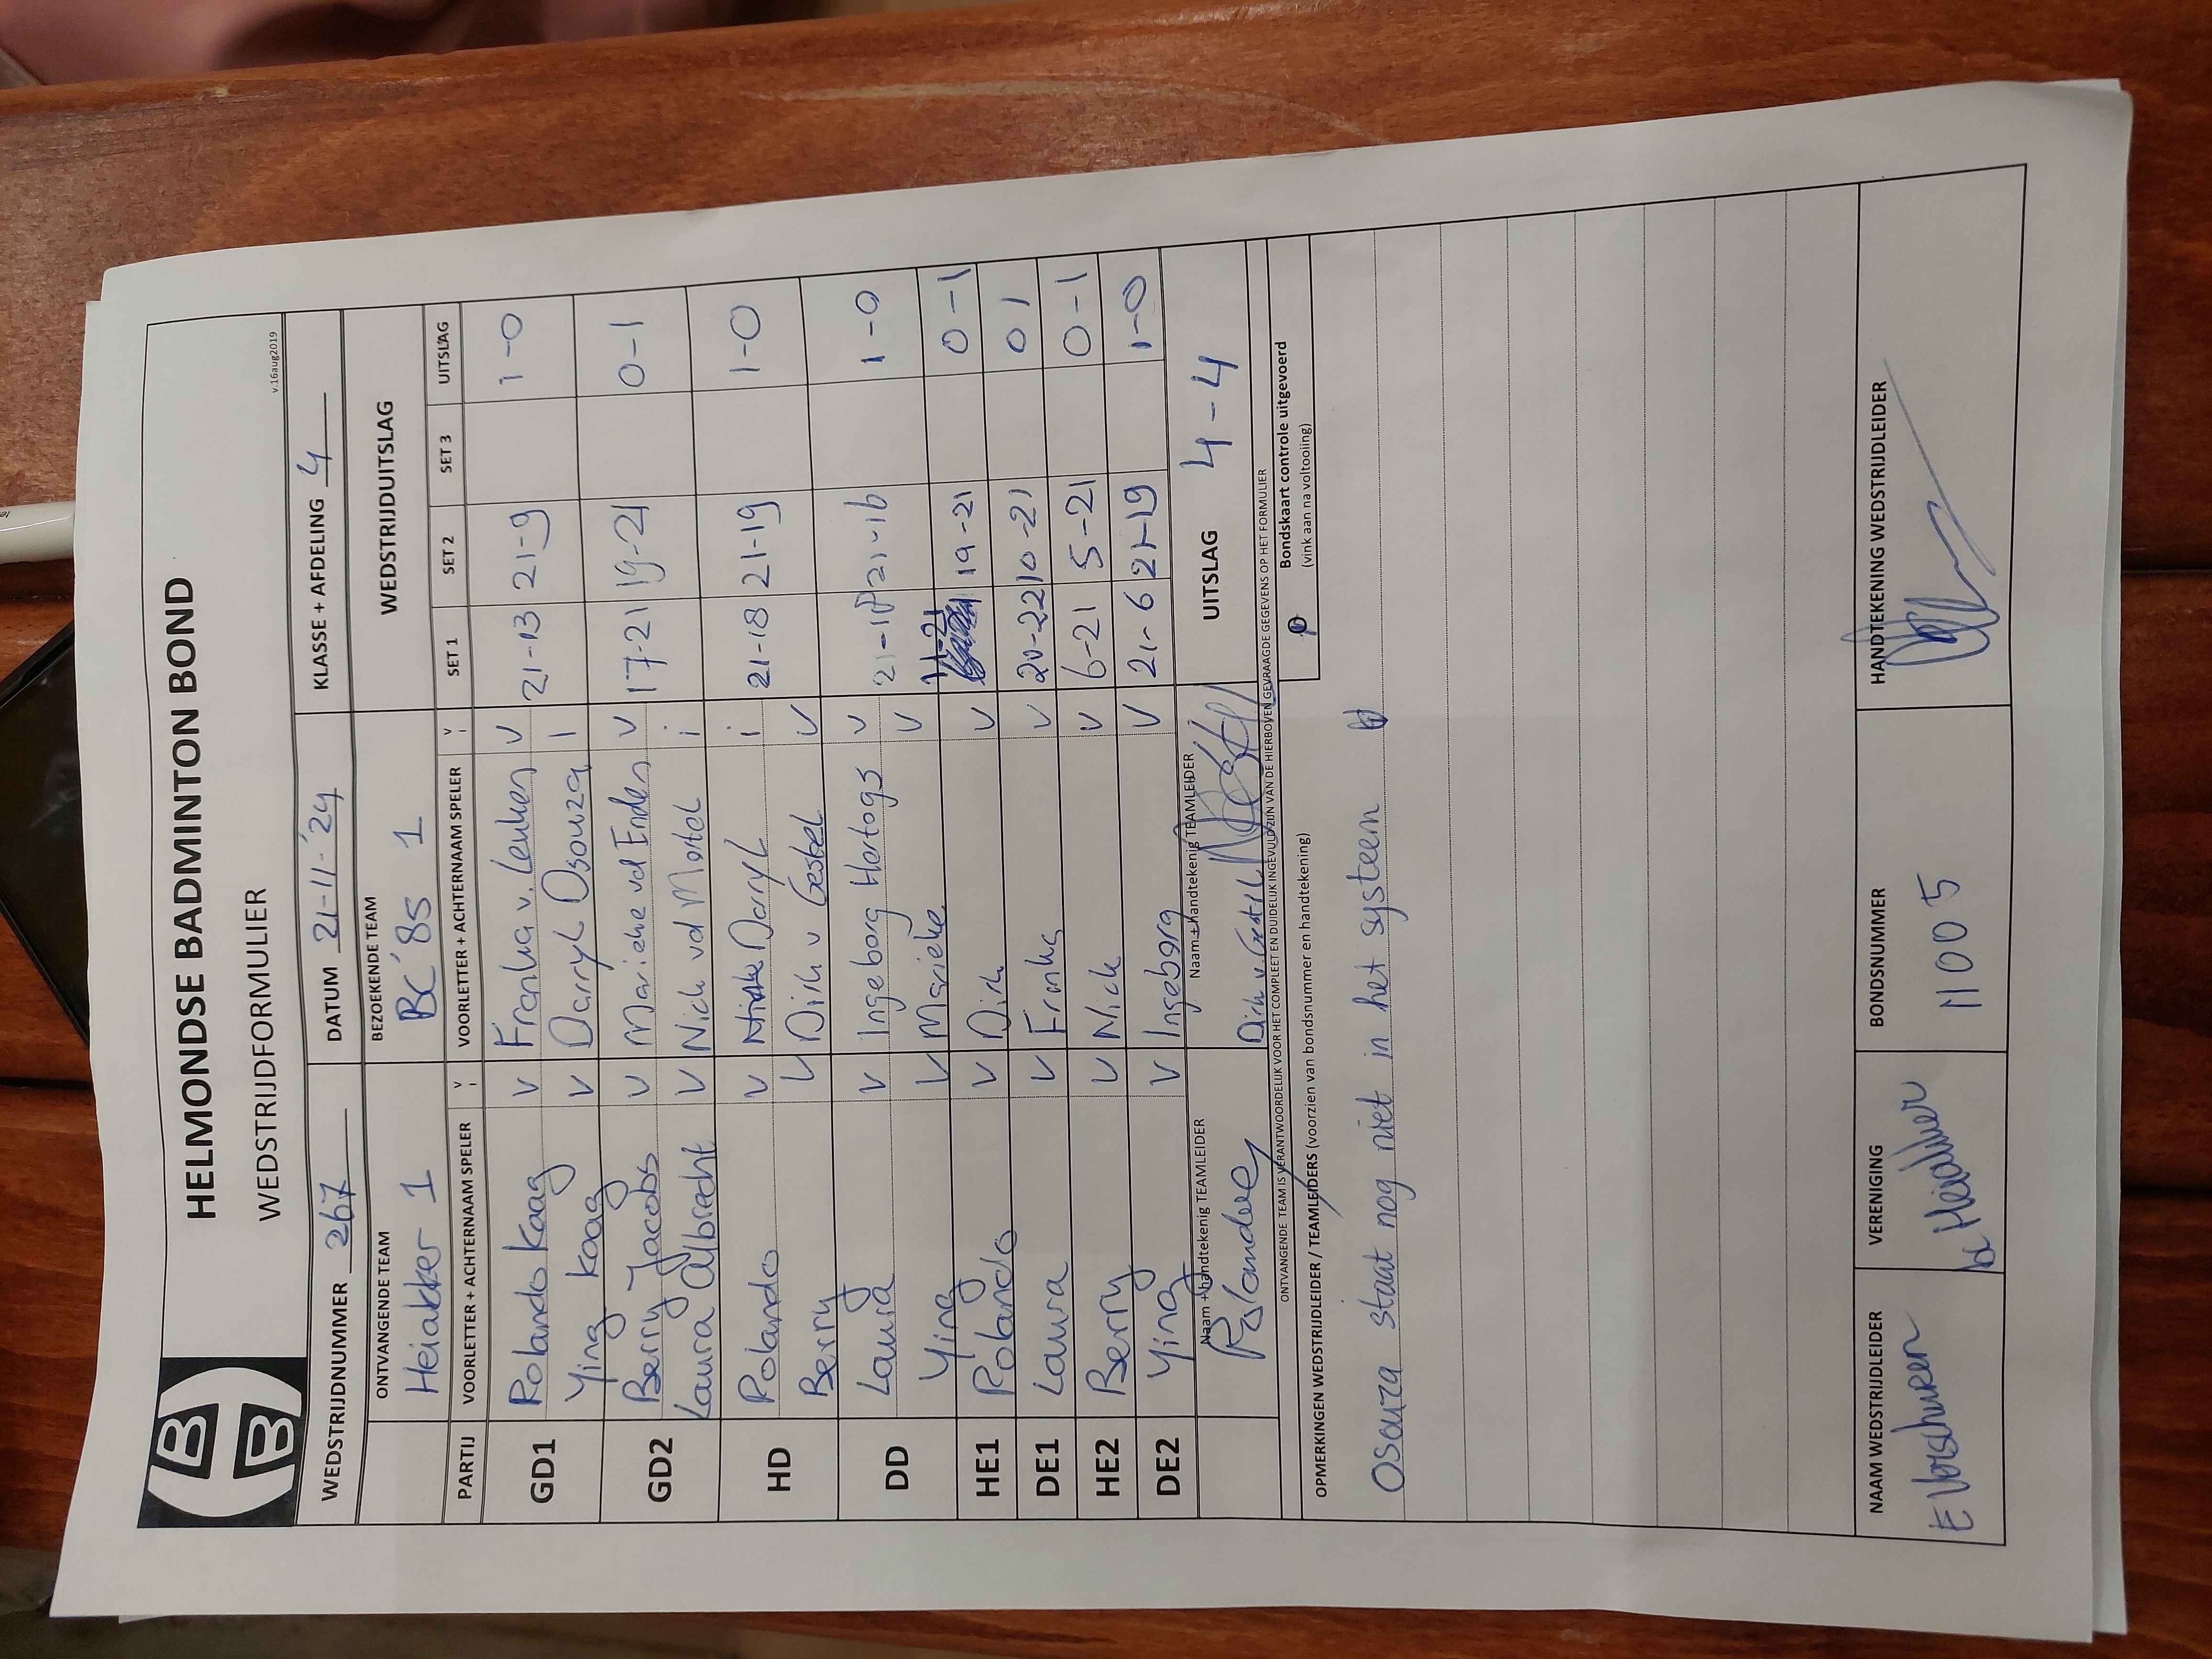 HELMONDSE BADMINTON BOND
WEDSTRIJDFORMULIER
v.16aug2019
WEDSTRIJDNUMMER 267 DATUM 21-11-'24 KLASSE + AFDELING 4
ONTVANGENDE TEAM BEZOEKENDE TEAM WEDSTRIJDUITSLAG
Heiakker 1 BC'85 1
PARTIJ VOORLETTER + ACHTERNAAM SPELER V i VOORLETTER + ACHTERNAAM SPELER V i SET 1 SET 2 SET 3 UITSLAG
GD1 Rolando Kaag V Franka v. Leuken V 21-13 21-9 1-0
Ying Kaag V Darryl Dsouza i
GD2 Berry Jacobs V Marieke vd Enden V 17-21 19-21 0-1
Laura Albrecht V Nick vd Mortel i
HD Rolando V Darryl i 21-18 21-19 1-0
Berry V Dirk v Gestel V
DD Laura V Ingeborg Hertogs V 21-18 21-16 1-0
Ying V Marieke V
HE1 Rolando V Dirk V 11-21 19-21 0-1
DE1 Laura V Franka V 20-22 10-21 0 1
HE2 Berry V Nick V 6-21 5-21 0-1
DE2 Ying V Ingeborg V 21-6 21-19 1-0
Naam + handtekenig TEAMLEIDER Naam + handtekenig TEAMLEIDER UITSLAG 4-4
Dirk v. Gestel
ONTVANGENDE TEAM IS VERANTWOORDELIJK VOOR HET COMPLEET EN DUIDELIJK INGEVULD ZIJN VAN DE HIERBOVEN GEVRAAGDE GEGEVENS OP HET FORMULIER
Bondskaart controle uitgevoerd
(vink aan na voltooiing)
OPMERKINGEN WEDSTRIJDLEIDER / TEAMLEIDERS (voorzien van bondsnummer en handtekening)
Osouza staat nog niet in het systeem
NAAM WEDSTRIJDLEIDER VERENIGING BONDSNUMMER HANDTEKENING WEDSTRIJDLEIDER
E Verschuren de Heiakker 11005